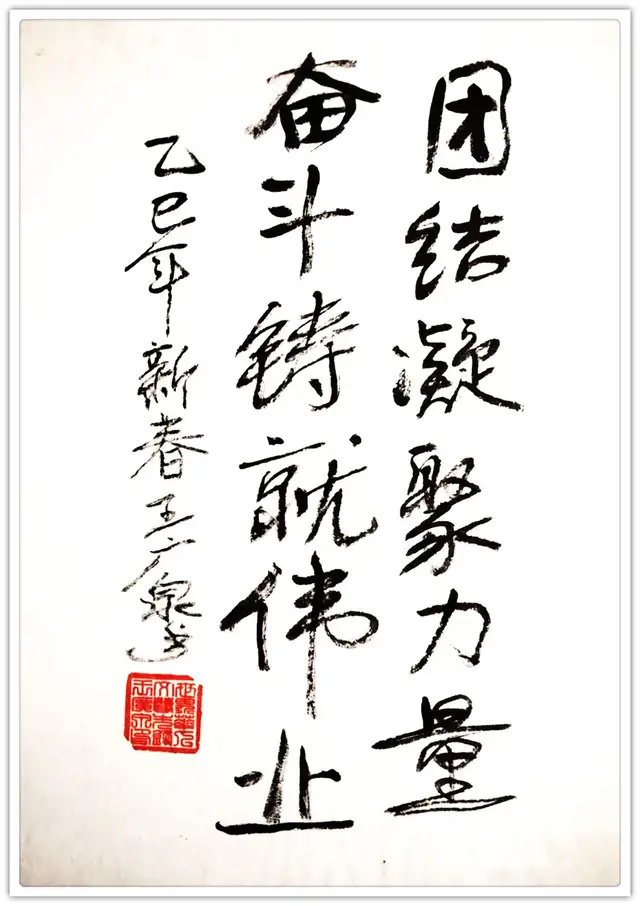 团结凝聚力量
奋斗铸就伟业
乙巳年新春王广泉书